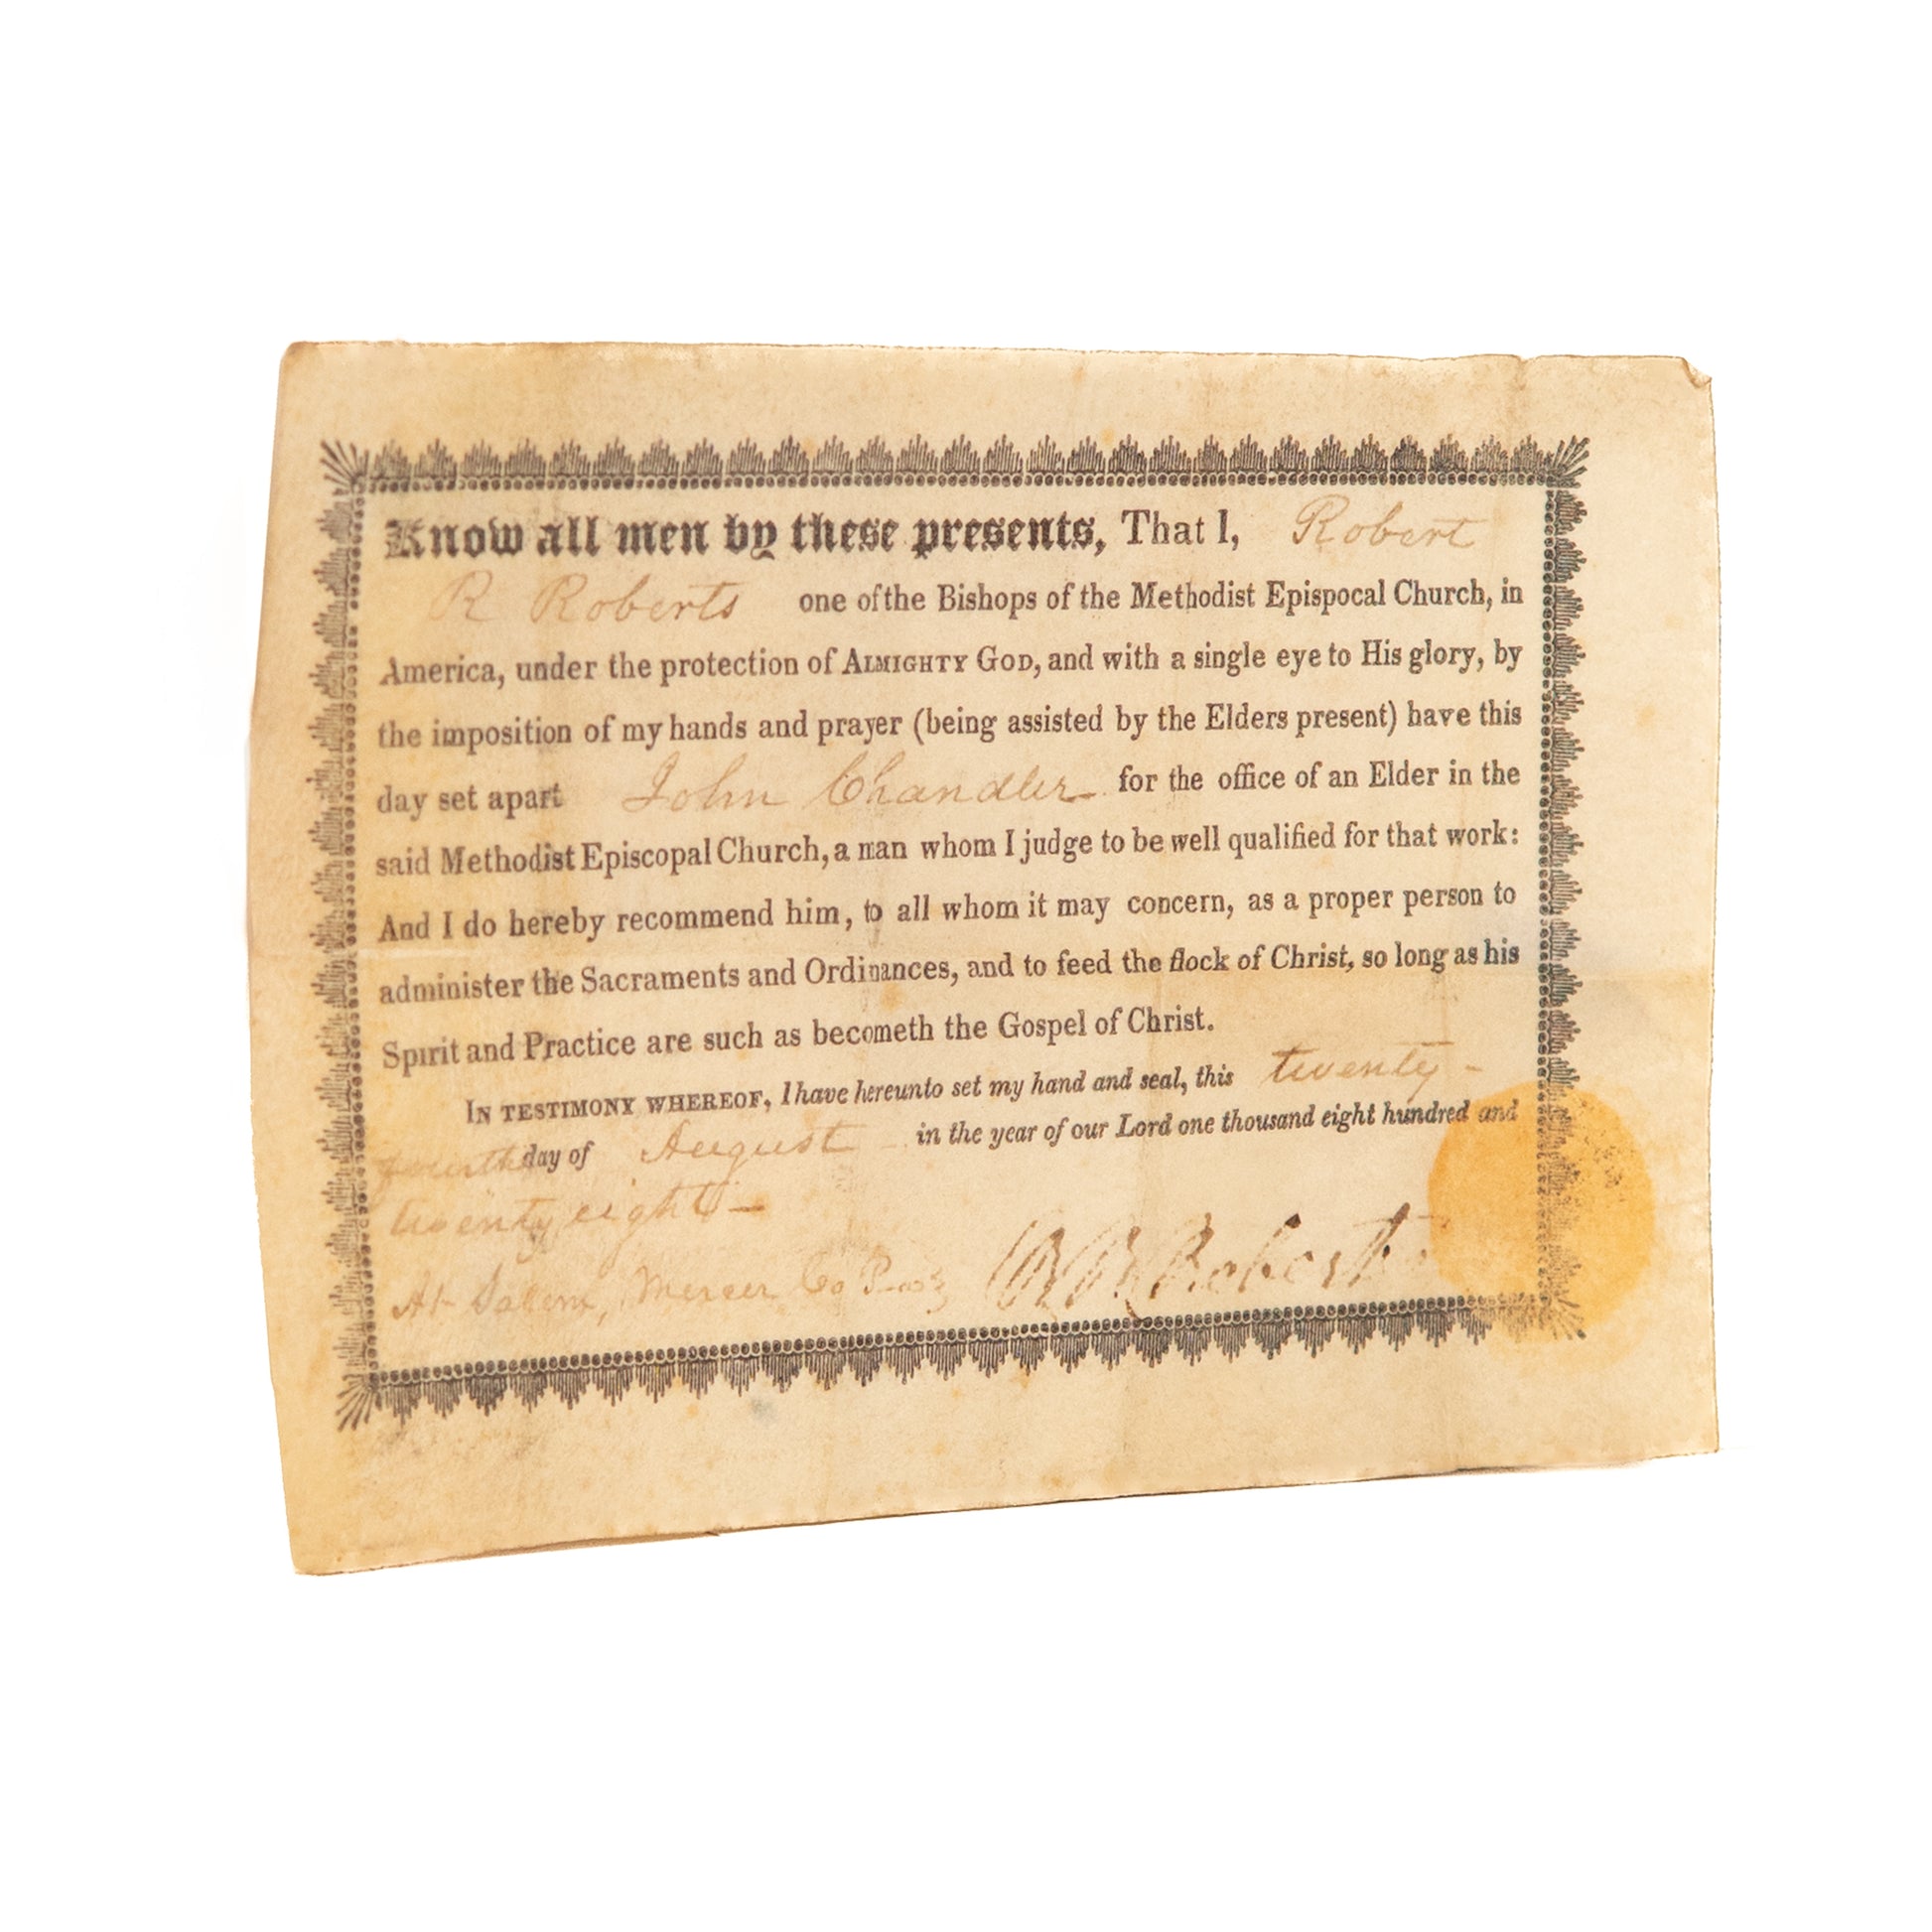 Know all men by these presents, That I, Robert
R Roberts one of the Bishops of the Methodist Epispocal Church, in
America, under the protection of ALMIGHTY GOD, and with a single eye to His glory, by
the imposition of my hands and prayer (being assisted by the Elders present) have this
day set apart John Chandler for the office of an Elder in the
said Methodist Episcopal Church, a man whom I judge to be well qualified for that work:
And I do hereby recommend him, to all whom it may concern, as a proper person to
administer the Sacraments and Ordinances, and to feed the flock of Christ, so long as his
Spirit and Practice are such as becometh the Gospel of Christ.
IN TESTIMONY WHEREOF, I have hereunto set my hand and seal, this twenty-
fourth day of August in the year of our Lord one thousand eight hundred and
twenty eight —
At Salem, Mercer Co R R Roberts